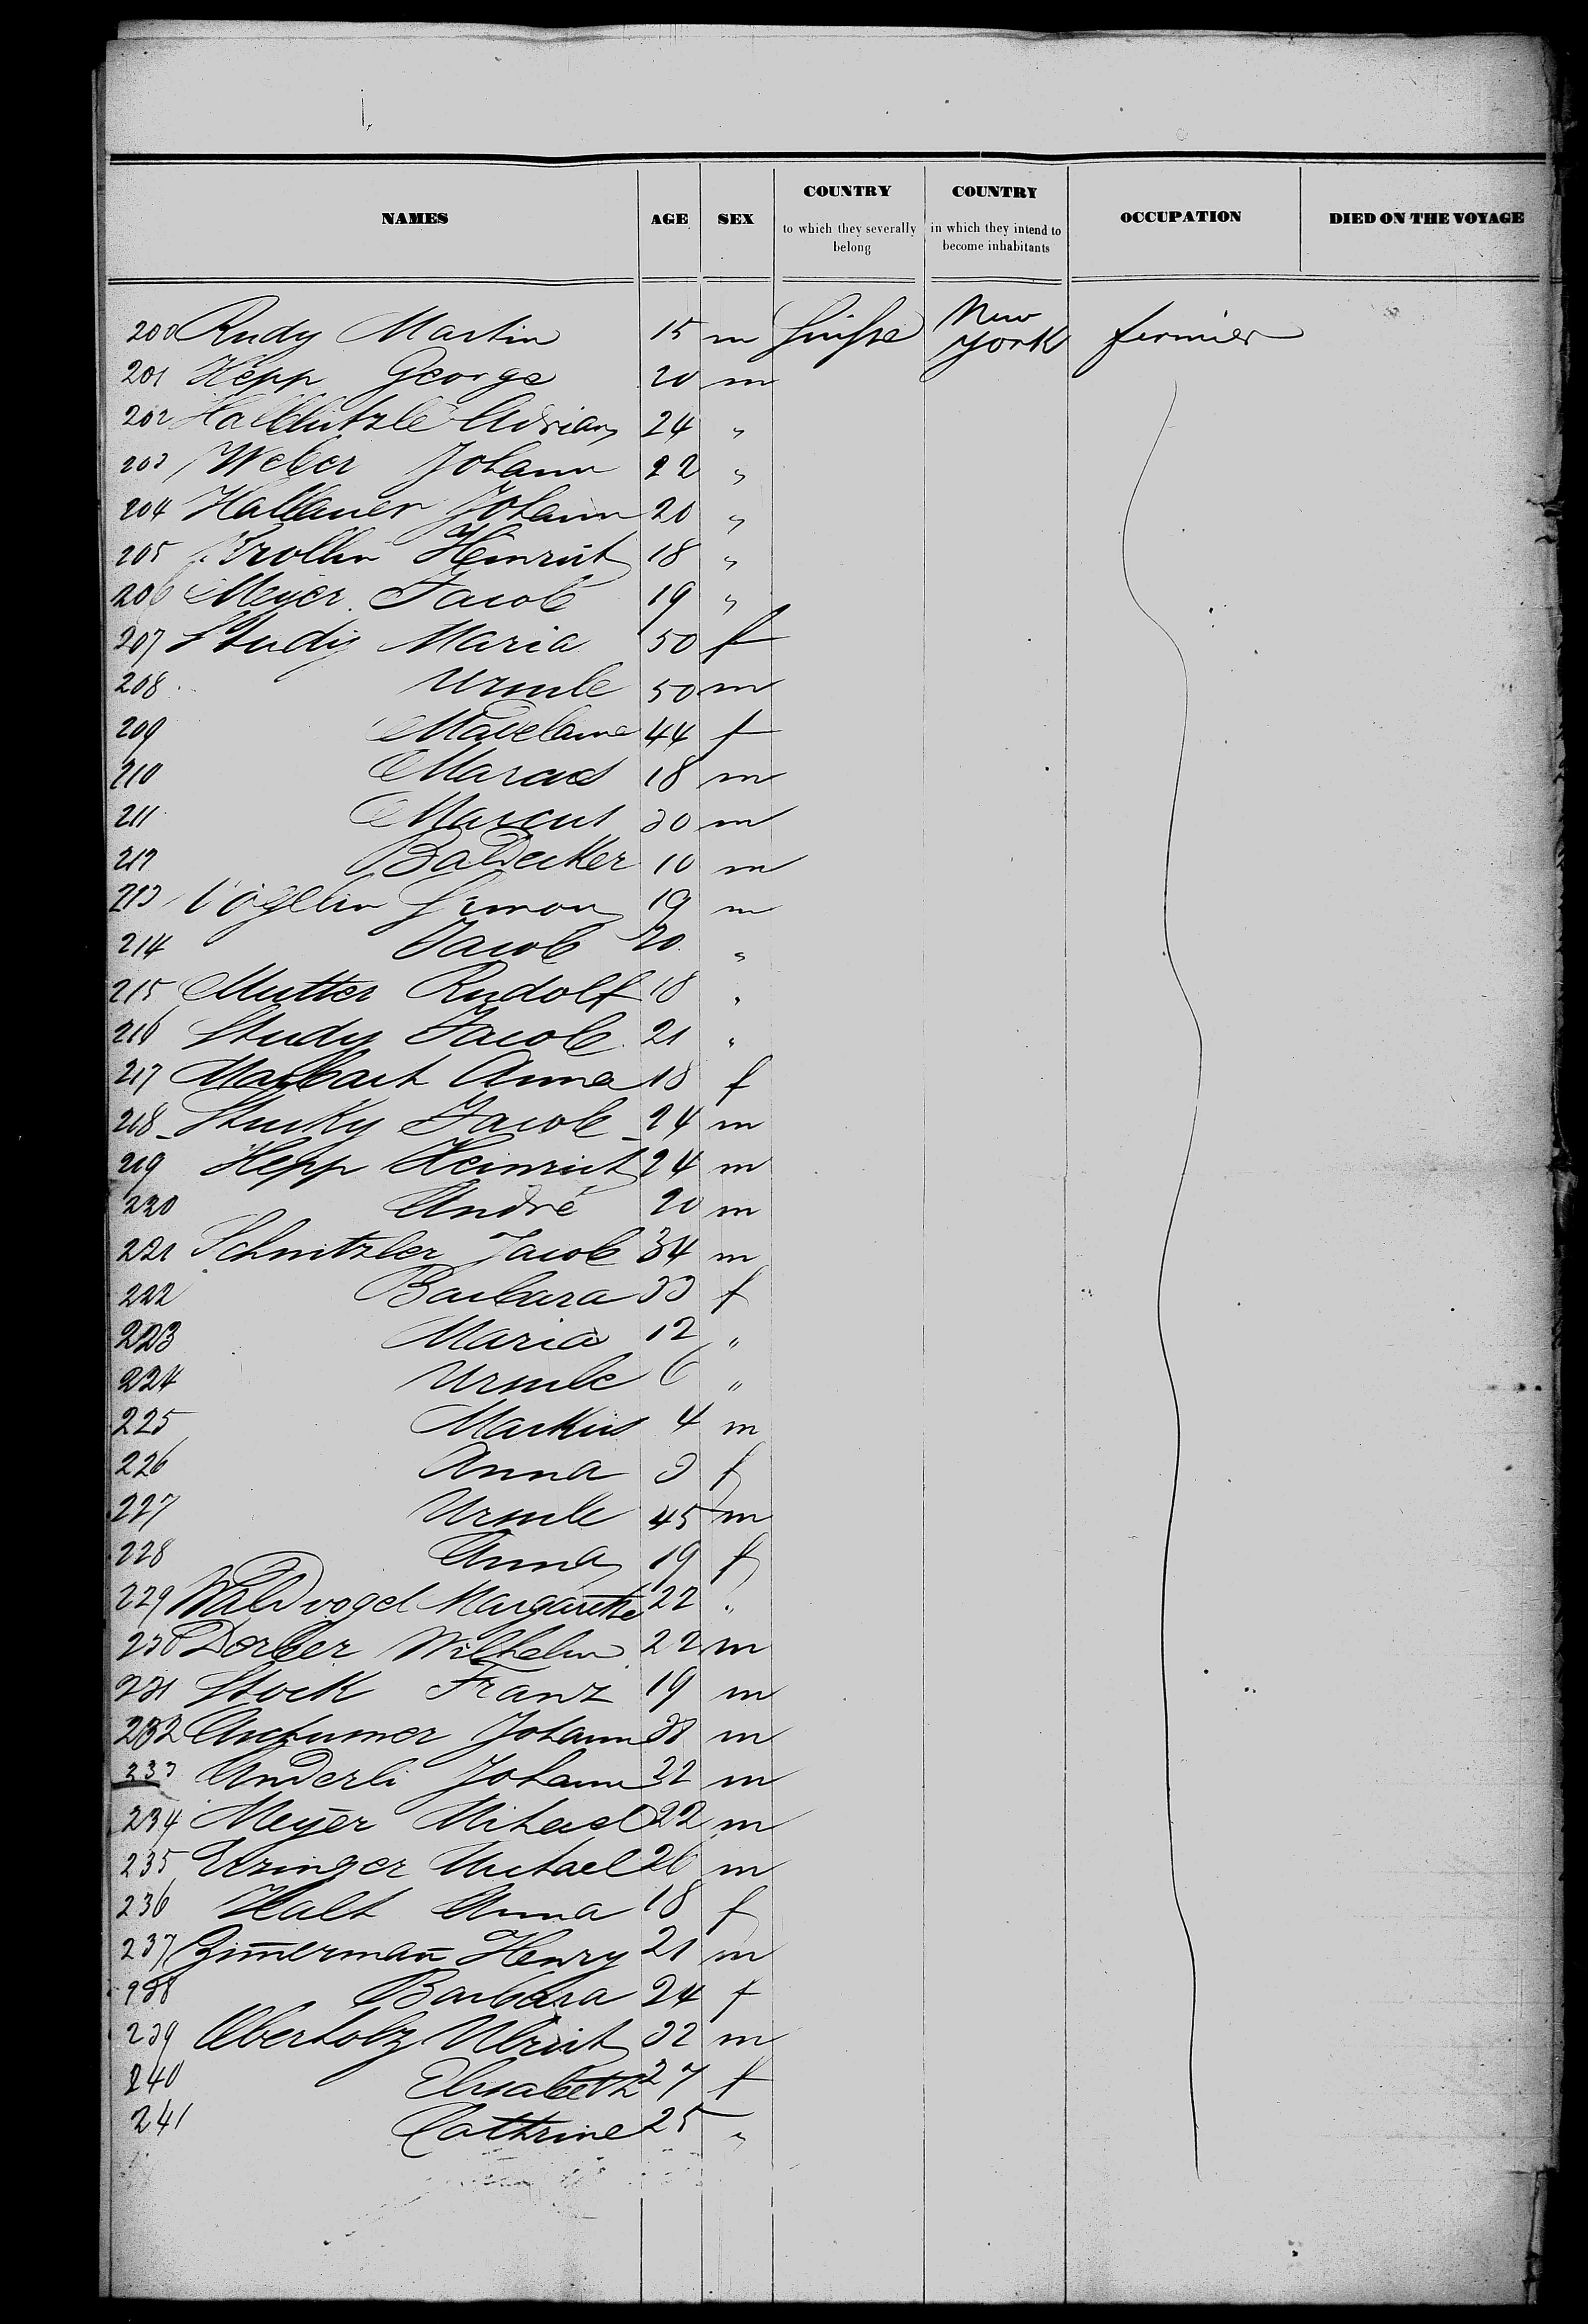 NAMES AGE SEX COUNTRY to which they severally belong COUNTRY in which they intend to become inhabitants OCCUPATION DIED ON THE VOYAGE
200 Rudy Martin 15 m Suisse New York fermier
201 Hepp George 20 m
202 Adrian 24 "
203 Weber Johann 22 "
204 Hallauer Johann 20 "
205 Heinrich 18 "
206 Meyer Jacob 19 "
207 Study Maria 50 f
208 Ursule 50 m
209 Madelaine 44 f
210 Marcus 18 m
211 Marcus 30 m
212 10 m
213 Vögelin Simon 19 m
214 Jacob 20 "
215 Mutter Rudolf 18 "
216 Study Jacob 21 "
217 Marbach Anna 18 f
218 Stucky Jacob 24 m
219 Hepp Heinrich 24 m
220 André 20 m
221 Schnitzler Jacob 34 m
222 Barbara 33 f
223 Maria 12 "
224 Ursule 6 "
225 Markus 4 m
226 Anna 3 f
227 Ursule 45 m
228 Anna 19 f
229 Waldvogel Margarethe 22 "
230 Derber Wilhelm 22 m
231 Stock Franz 19 m
232 Johann 38 m
233 Anderli Johann 32 m
234 Meÿer Michael 22 m
235 Michael 26 m
236 Halt Anna 18 f
237 Zim̄erman̄ Henry 21 m
238 Barbara 24 f
239 Oberholz Ulrich 32 m
240 Elisabeth 27 f
241 Cathrine 25 "